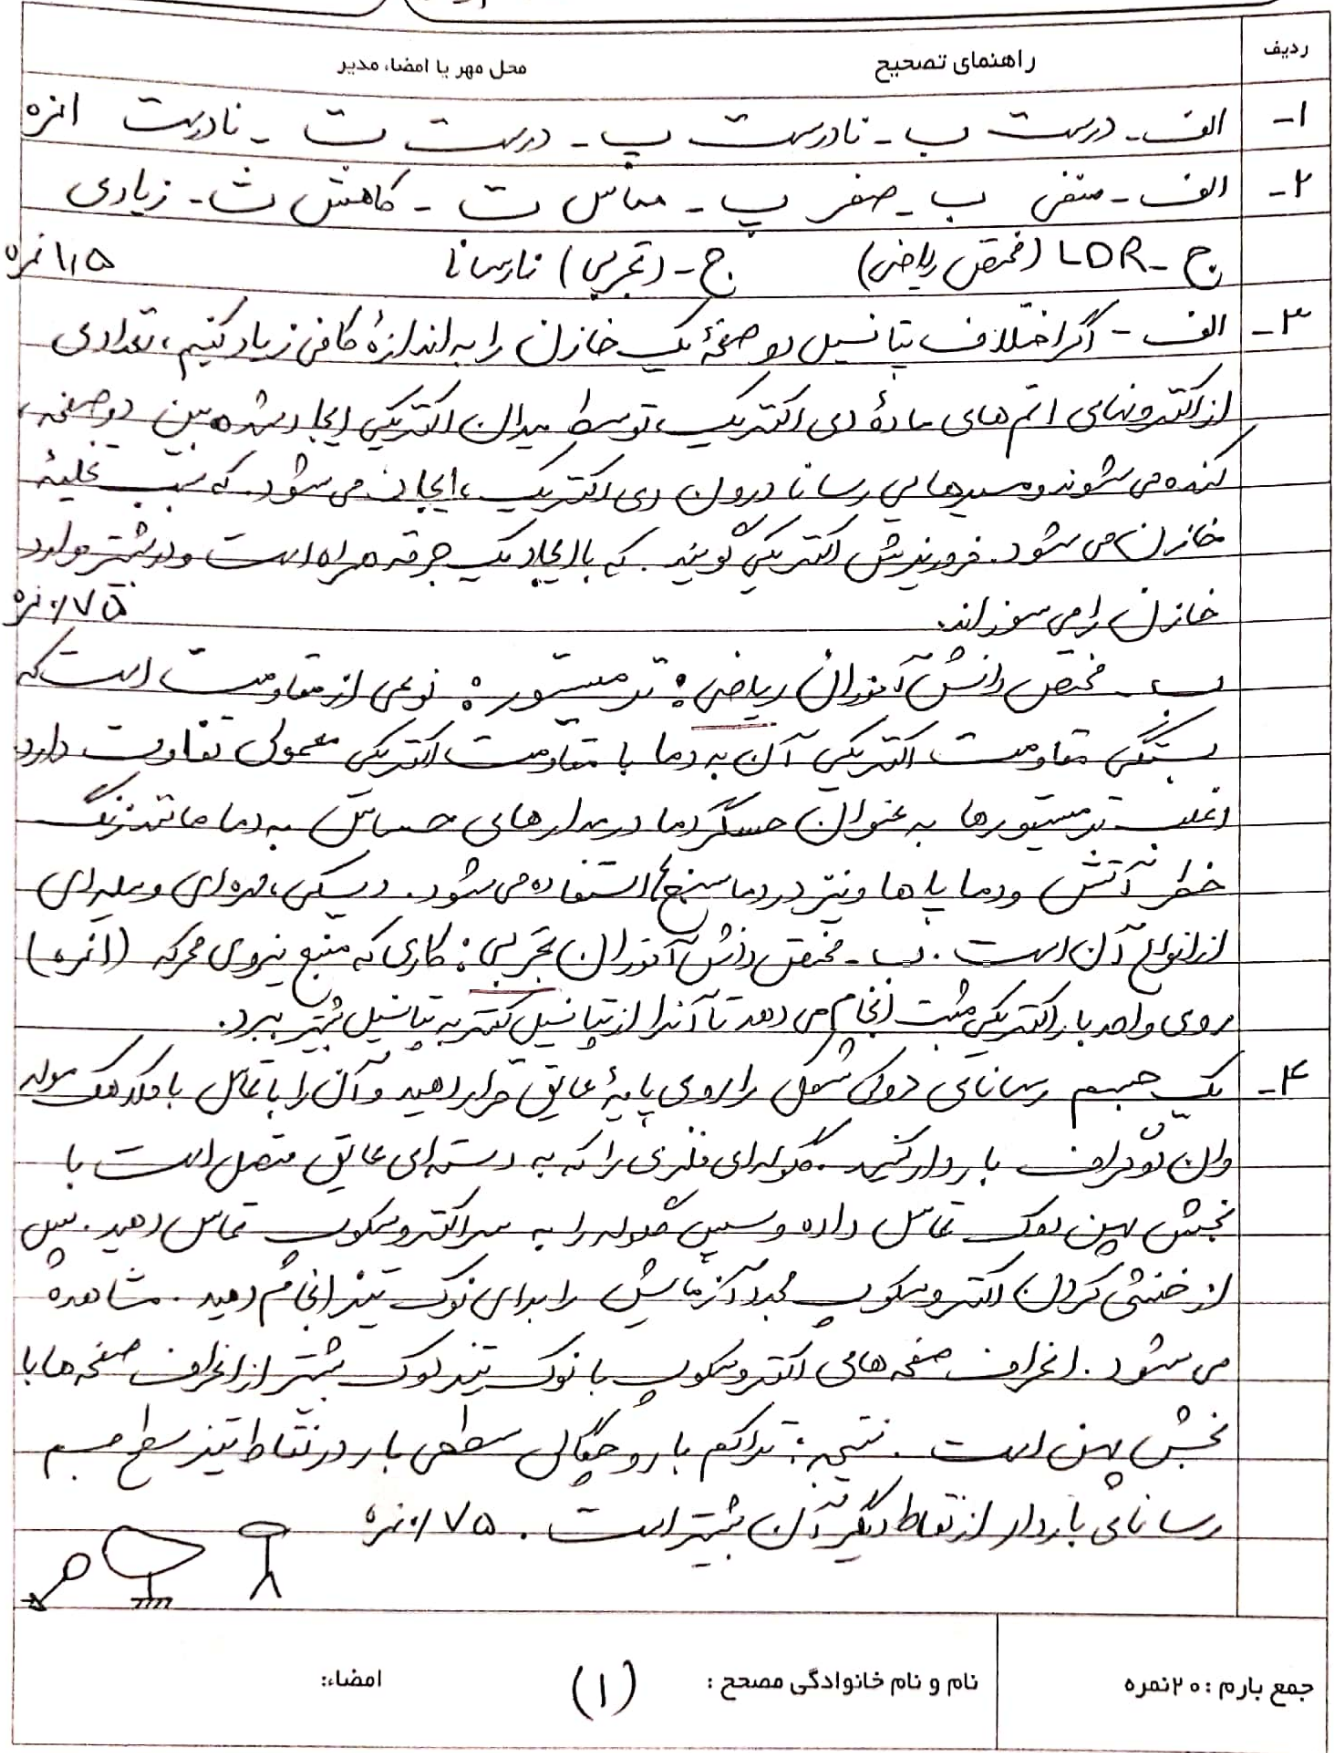 ردیف
راهنمای تصحیح
محل مهر یا امضاء مدیر
۱- الف - درست ب - نادرست پ - درست ت - نادرست ۱نمره
۲- الف - منفی ب - صفر پ - مماس ت - کاهش ث - زیادی
ج - LDR (مختص ریاضی) ج - (تجربی) نارسانا ۱/۵ نمره
۳- الف - اگر اختلاف پتانسیل دو صفحهٔ یک خازن را به اندازهٔ کافی زیاد کنیم، تعدادی
از الکترونهای اتم های مادهٔ دی الکتریک، توسط میدان الکتریکی ایجاد شده بین دو صفحه،
کنده می شوند و مسیرهایی رسانا درون دی الکتریک، ایجاد می شود. که سبب تخلیهٔ
خازن می شود. فروریزش الکتریکی گویند. که با ایجاد یک جرقه همراه است و در بیشتر موارد
خازن را می سوزاند. ۰/۷۵ نمره
ب - مختص دانش آموزان ریاضی: ترمیستور: نوعی از مقاومت است که
بستگی مقاومت الکتریکی آن به دما با مقاومت الکتریکی معمولی تفاوت دارد
اغلب ترمیستورها به عنوان حسگر دما در مدارهای حساس به دما مانند زنگ
خطر آتش و دما پاها و نیز در دماسنج ها استفاده می شود. دیسکی، مهره ای و میله ای
از انواع آن است. ب - مختص دانش آموزان تجربی: کاری که منبع نیروی محرکه (۱نمره)
روی واحد بار الکتریکی مثبت انجام می دهد تا آنرا از پتانسیل کمتر به پتانسیل بیشتر ببرد.
۴- یک جسم رسانای دوکی شکل را روی پایهٔ عایق قرار دهید و آن را با تماس با کلاهک مولد
وان دوگراف باردار کنید. گلوله ای فلزی را که به دسته ای عایق متصل است با
بخش پهن دوک تماس داده و سپس گلوله را به سر الکتروسکوپ تماس دهید. پس
از خنثی کردن الکتروسکوپ مجدد آزمایش را برای نوک تیز انجام دهید. مشاهده
می شود. انحراف صفحه های الکتروسکوپ با نوک تیز دوک بیشتر از انحراف صفحه ها با
بخش پهن است. نتیجه: تراکم بار و چگالی سطحی بار در نقاط تیز سطح جسم
رسانای باردار از نقاط دیگر آن بیشتر است. ۰/۷۵ نمره
جمع بارم : ۲۰نمره
نام و نام خانوادگی مصحح : (۱)
امضاء: